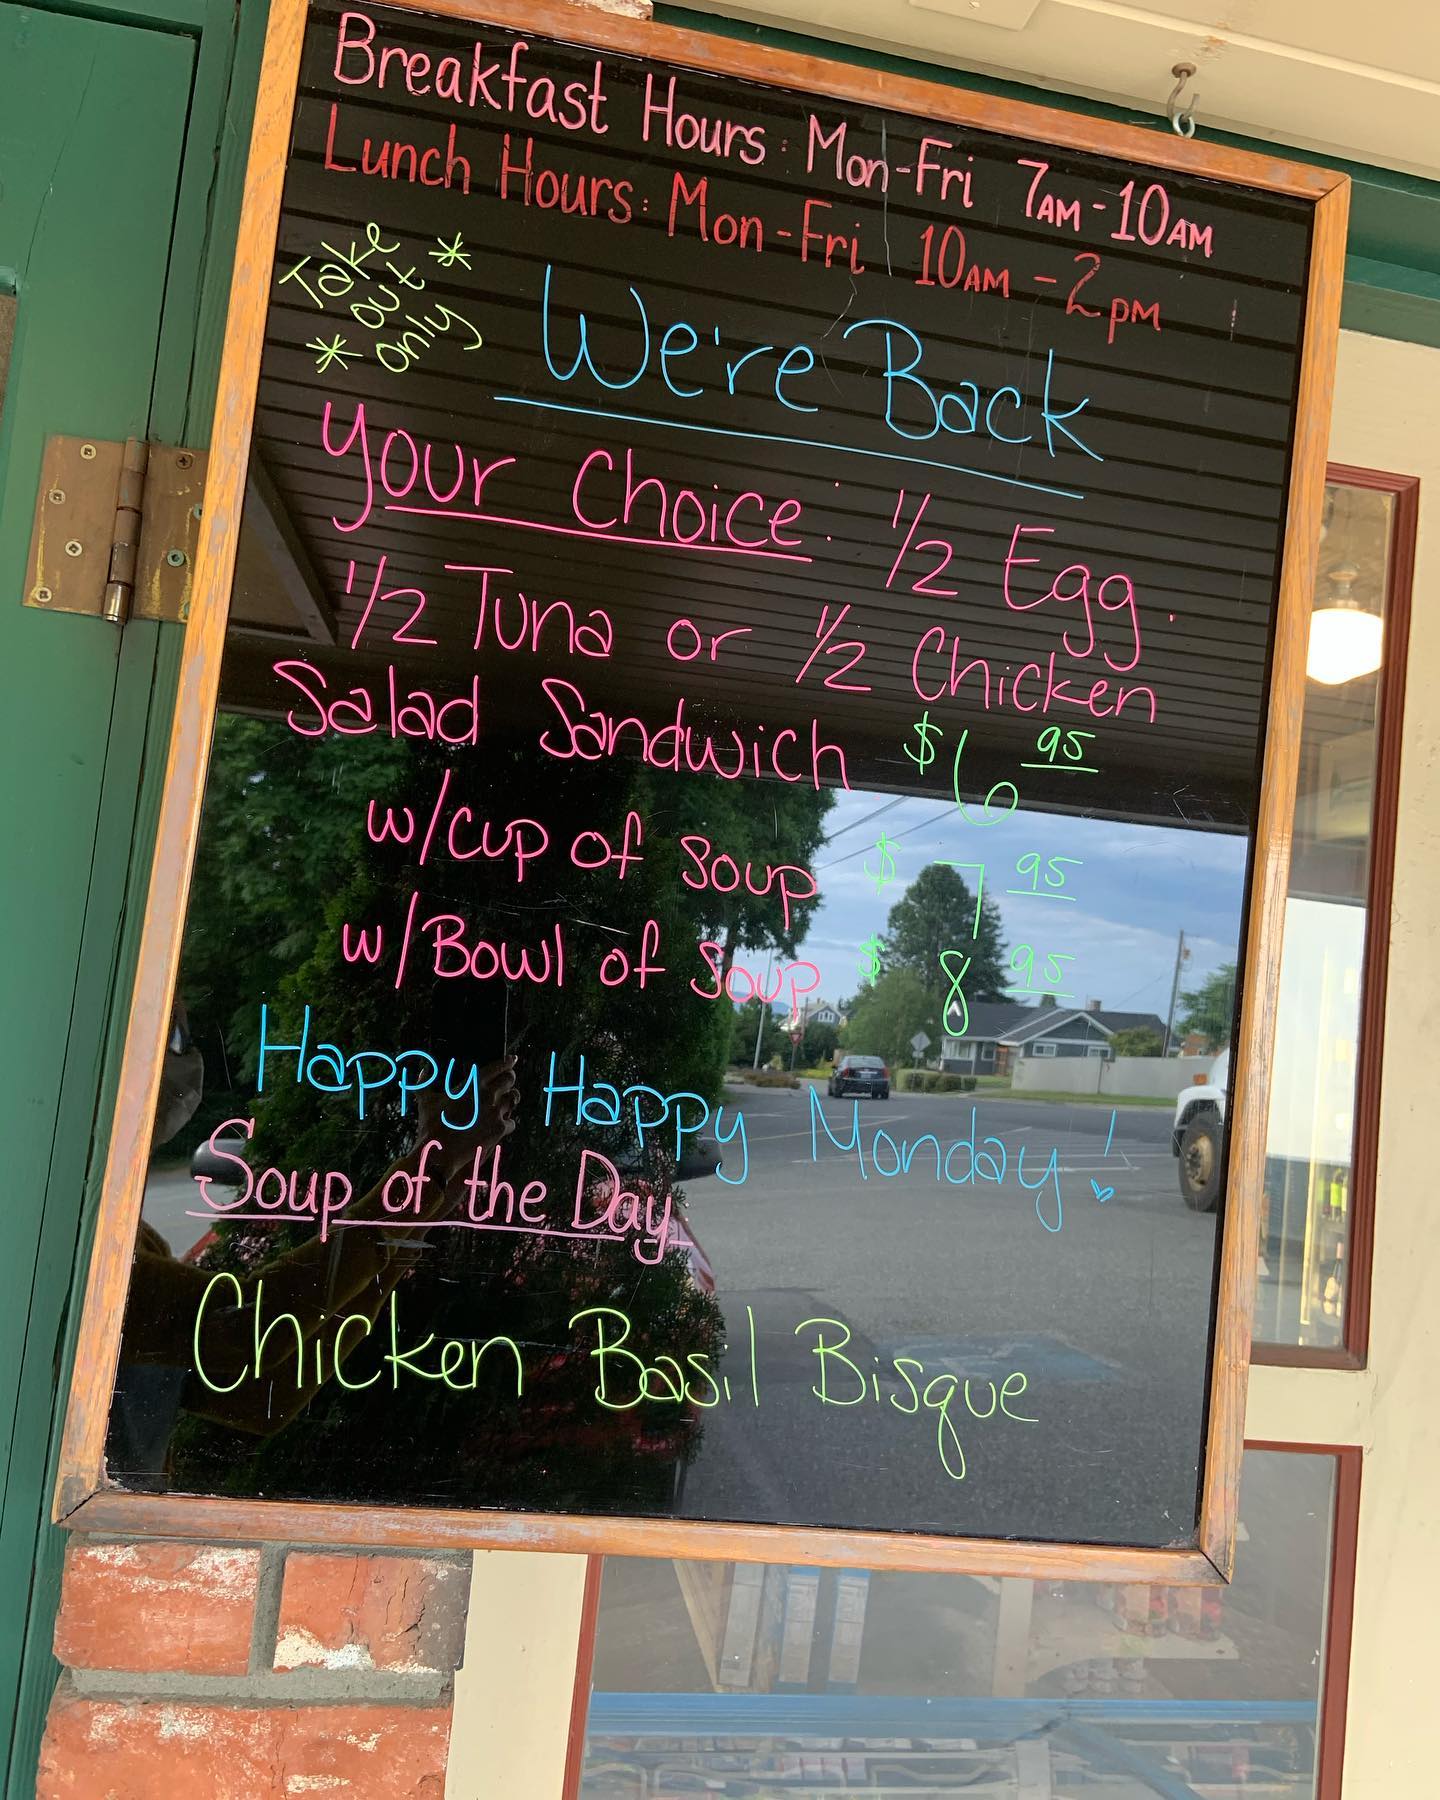 Breakfast Hours: Mon-Fri 7AM-10AM
Lunch Hours: Mon-Fri 10AM-2PM
*Take
out
only*
We're Back
Your Choice: 1/2 Egg.
1/2 Tuna or 1/2 Chicken
Salad Sandwich $6 95
w/cup of soup $7 95
w/Bowl of soup $8 95
Happy Happy Monday!
Soup of the Day
Chicken Basil Bisque